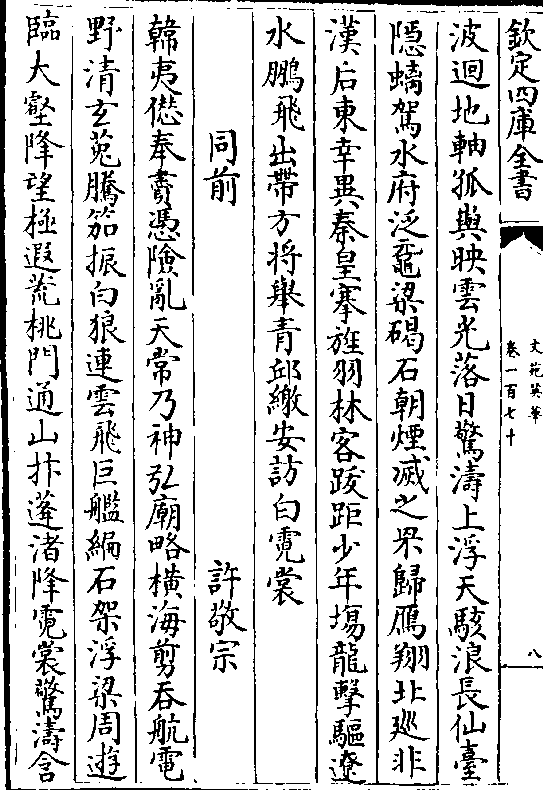 欽定四庫全書
文苑英華
卷一百七十
八
波迴地軸孤與映雲光落日驚濤上浮天駭浪長仙臺
隱螭駕水府泛黿梁碣石朝煙滅之罘歸鴈翔北廵非
漢后東幸異秦皇搴旌羽林客䟦距少年場龍擊驅遼
水鵬飛出帶方将舉青邱繳安訪白霓裳
同前
許敬宗
韓夷僽奉賮憑險亂天常乃神弘廟略横海剪吞航電
野清玄菟騰笳振白狼連雲飛巨艦編石架浮梁周遊
臨大壑降望極遐荒桃門通山抃蓬渚降霓裳驚濤含